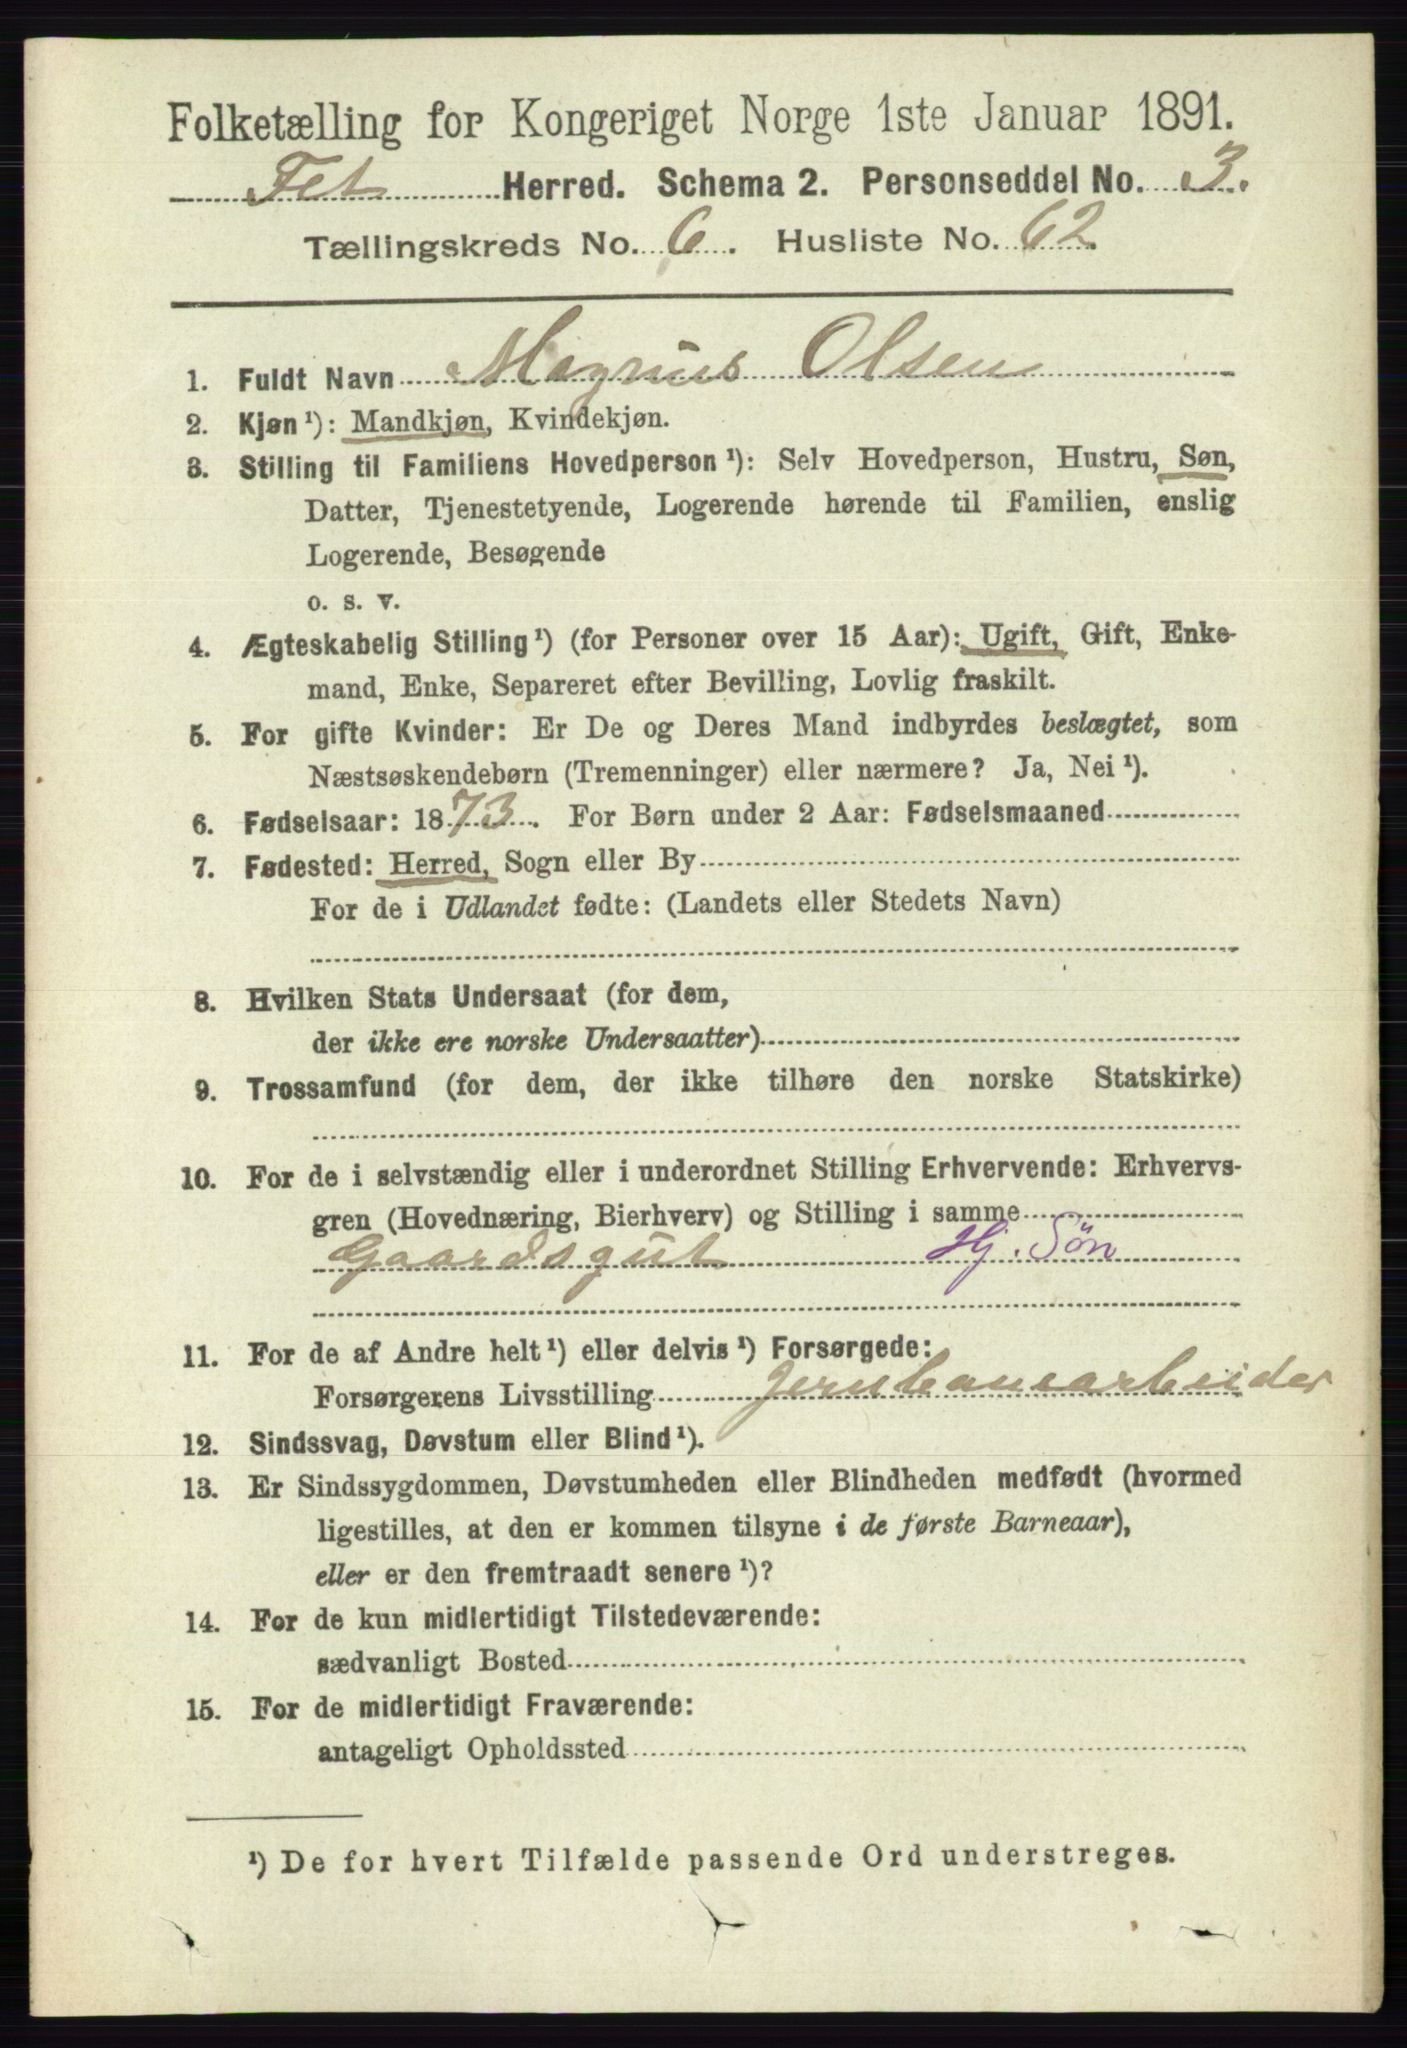 Folketælling for Kongeriget Norge 1ste Januar 1891.
Fet Herred. Schema 2. Personseddel No. 3.
Tællingskreds No. 6. Husliste No. 62.
1. Fuldt Navn Magnus Olsen
2. Kjøn ¹): Mandkjøn, Kvindekjøn.
3. Stilling til Familiens Hovedperson ¹): Selv Hovedperson, Hustru, Søn,
Datter, Tjenestetyende, Logerende hørende til Familien, enslig
Logerende, Besøgende
o. s. v.
4. Ægteskabelig Stilling ¹) (for Personer over 15 Aar): Ugift, Gift, Enke-
mand, Enke, Separeret efter Bevilling, Lovlig fraskilt.
5. For gifte Kvinder: Er De og Deres Mand indbyrdes beslægtet, som
Næstsøskendebørn (Tremenninger) eller nærmere? Ja, Nei ¹).
6. Fødselsaar: 1873. For Børn under 2 Aar: Fødselsmaaned
7. Fødested: Herred, Sogn eller By
For de i Udlandet fødte: (Landets eller Stedets Navn)
8. Hvilken Stats Undersaat (for dem,
der ikke ere norske Undersaatter)
9. Trossamfund (for dem, der ikke tilhøre den norske Statskirke)
10. For de i selvstændig eller i underordnet Stilling Erhvervende: Erhvervs-
gren (Hovednæring, Bierhverv) og Stilling i samme
Gaardsgut Hj. Søn
11. For de af Andre helt ¹) eller delvis ¹) Forsørgede:
Forsørgerens Livsstilling jernbanearbeider
12. Sindssvag, Døvstum eller Blind ¹).
13. Er Sindssygdommen, Døvstumheden eller Blindheden medfødt (hvormed
ligestilles, at den er kommen tilsyne i de første Barneaar),
eller er den fremtraadt senere ¹)?
14. For de kun midlertidigt Tilstedeværende:
sædvanligt Bosted
15. For de midlertidigt Fraværende:
antageligt Opholdssted
¹) De for hvert Tilfælde passende Ord understreges.